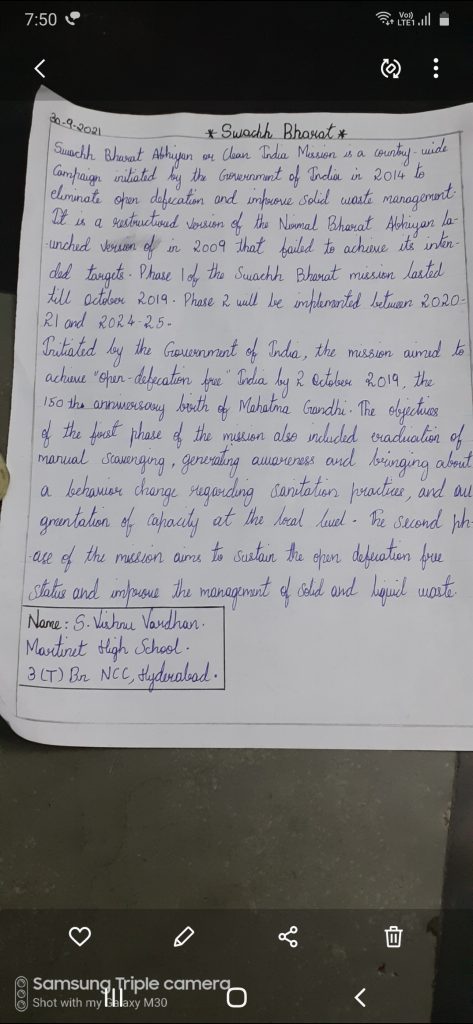 7:50
Vo))
LTE1
30-9-2021
* Swachh Bharat *
Swachh Bharat Abhiyan or Clean India Mission is a country-wide
Campaign initiated by the Government of India in 2014 to
eliminate open defecation and improve solid waste management.
It is a restructured version of the Nirmal Bharat Abhiyan la-
unched version of in 2009 that failed to achieve its inten-
ded targets. Phase 1 of the Swachh Bharat mission lasted
till october 2019. Phase 2 will be implemented between 2020-
21 and 2024-25.
Initiated by the Government of India, the mission aimed to
achieve "open-defecation free" India by 2 October 2019, the
150 the anniversary birth of Mahatma Gandhi. The objectives
of the first phase of the mission also included eraduation of
manual scavenging, generating awareness and bringing about
a behavior change regarding sanitation practices, and au
gmentation of capacity at the local level. The second ph-
ase of the mission aims to sustain the open defecation free
status and improve the management of solid and liquid waste.
Name: S. Vishnu Vardhan.
Martinet High School.
3 (T) Bn NCC, Hyderabad.
Samsung Triple camera
Shot with my Galaxy M30